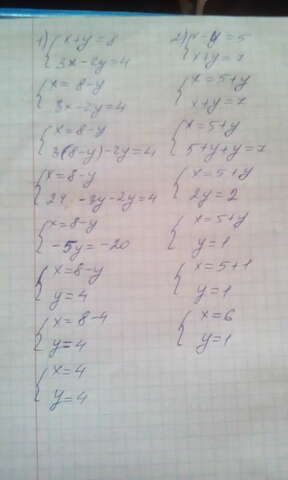 1) { x+y=8
3x-2y=4
{ x=8-y
3x-2y=4
{ x=8-y
3(8-y)-2y=4
{ x=8-y
24-3y-2y=4
{ x=8-y
-5y=-20
{ x=8-y
y=4
{ x=8-4
y=4
{ x=4
y=4
2) { x-y=5
x+y=7
{ x=5+y
x+y=7
{ x=5+y
5+y+y=7
{ x=5+y
2y=2
{ x=5+y
y=1
{ x=5+1
y=1
{ x=6
y=1